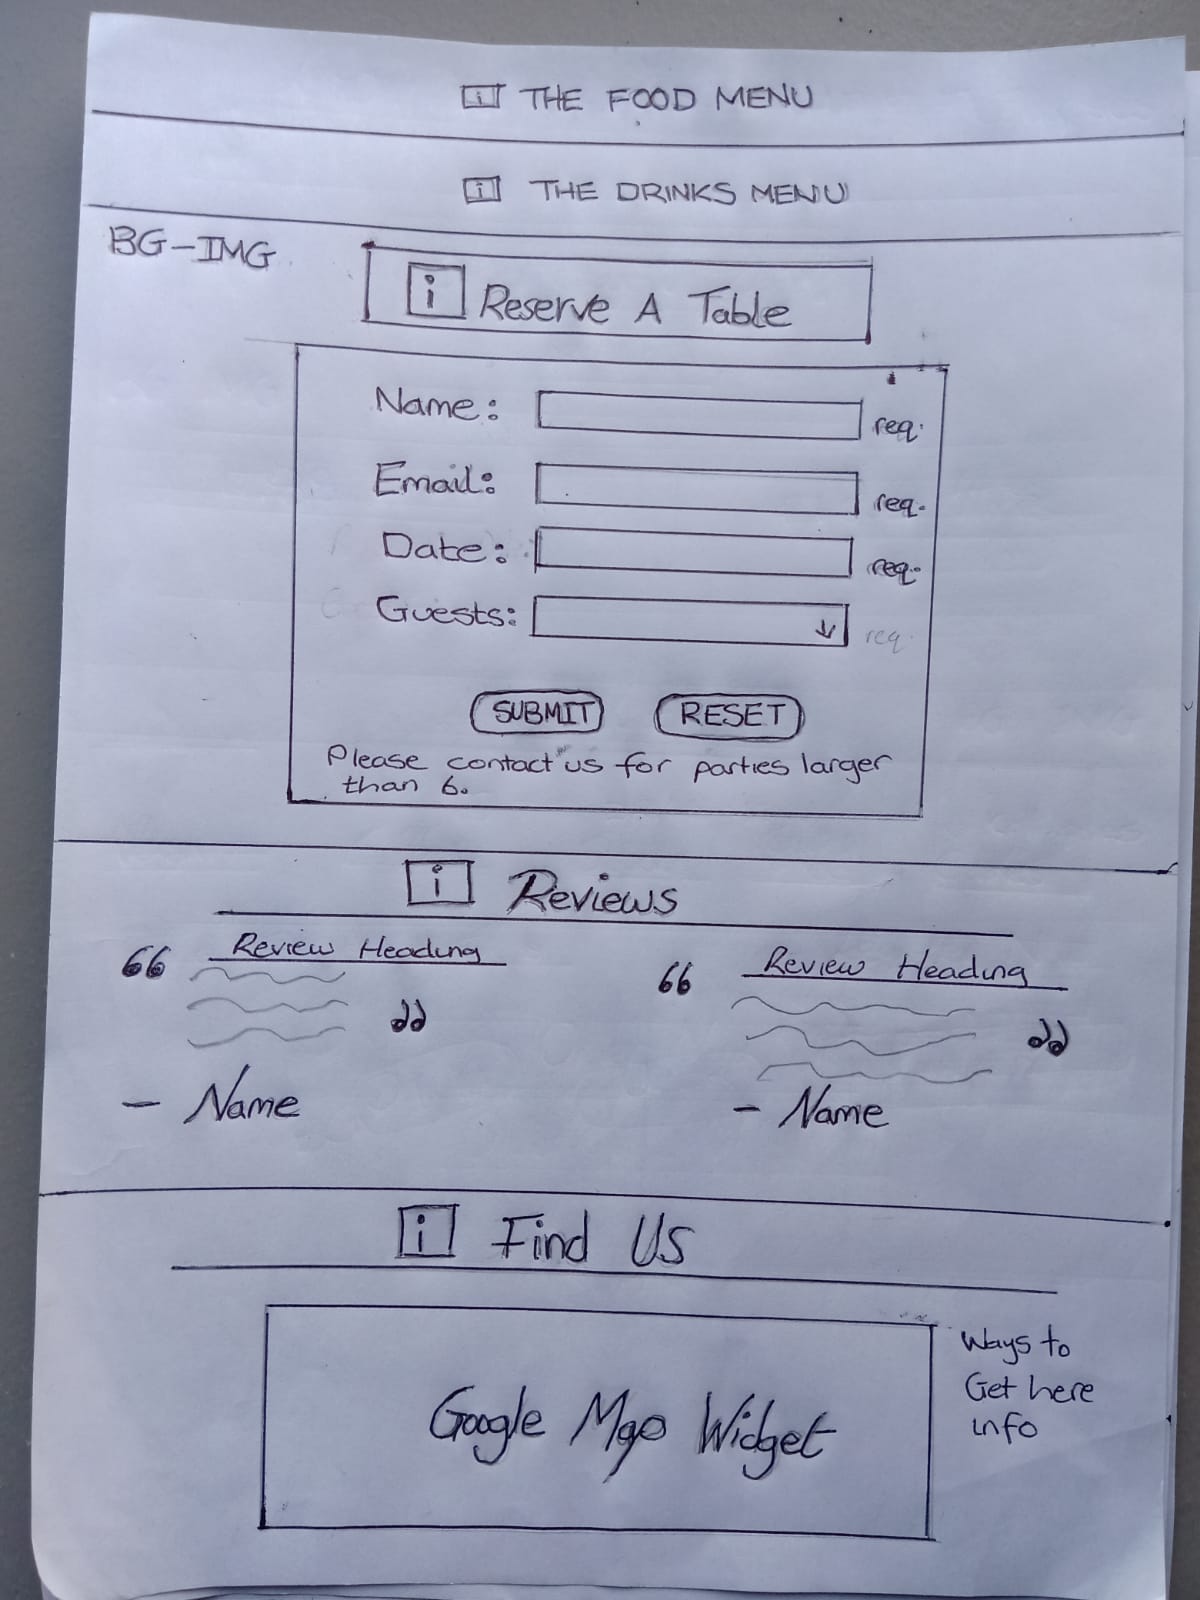 i THE FOOD MENU
i THE DRINKS MENU
BG-IMG
i Reserve A Table
Name: req.
Email: req.
Date: req.
Guests: req.
SUBMIT RESET
Please contact us for parties larger
than 6.
i Reviews
66 Review Heading
- Name
66 Review Heading
- Name
i Find Us
Google Map Widget
Ways to
Get here
info